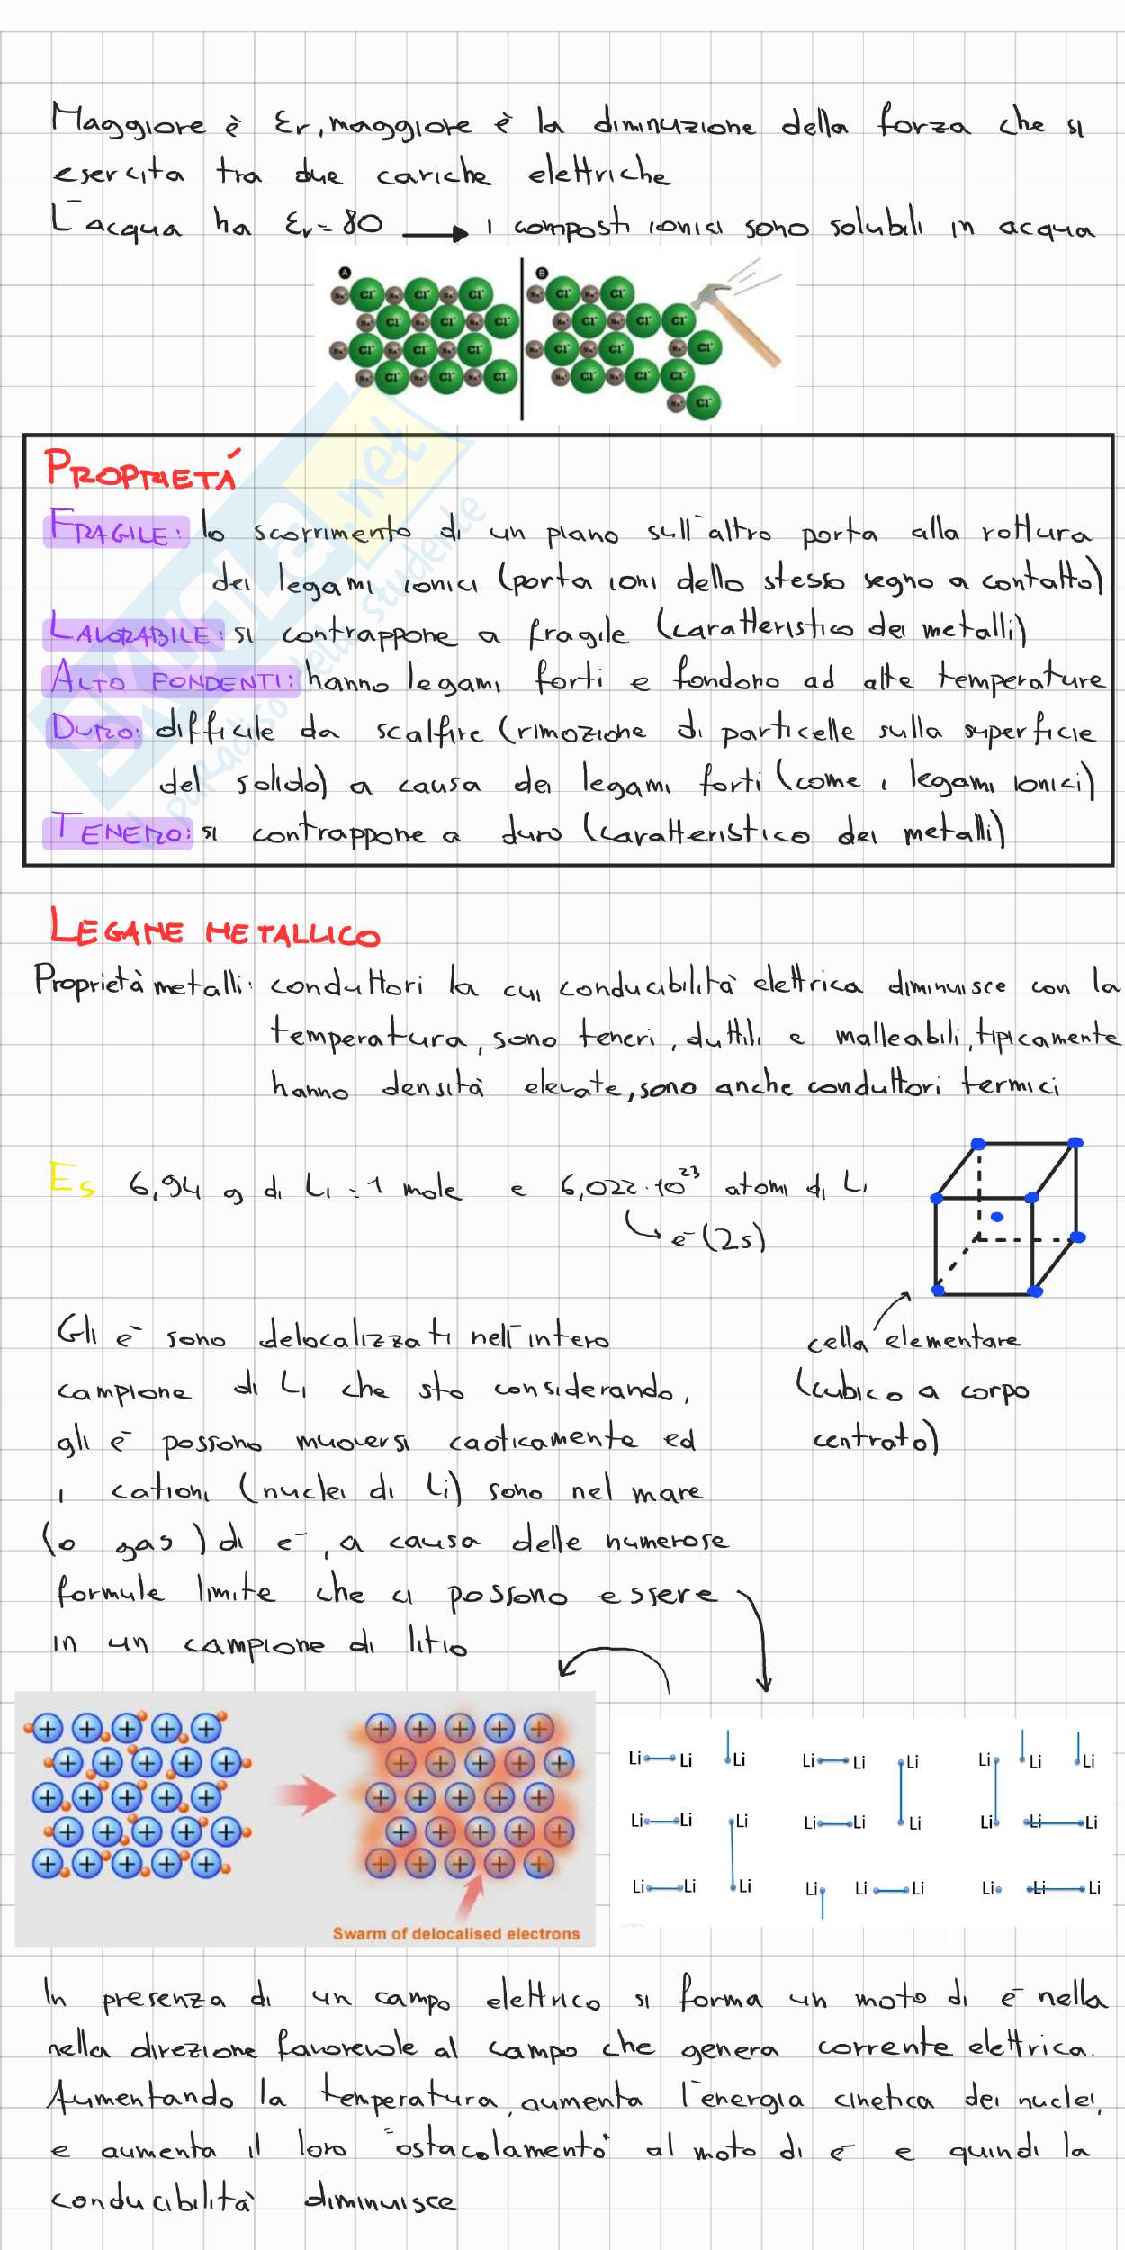 Maggiore è εr, maggiore è la diminuzione della forza che si
esercita tra due cariche elettriche
L'acqua ha εr = 80 → i composti ionici sono solubili in acqua
A
B
Na⁺ Cl⁻ Na⁺ Cl⁻ Na⁺ Cl⁻
Na⁺ Cl⁻ Na⁺ Cl⁻
Na⁺ Cl⁻ Na⁺ Cl⁻ Na⁺ Cl⁻
Na⁺ Cl⁻ Na⁺ Cl⁻ Cl⁻
Na⁺ Cl⁻ Na⁺ Cl⁻ Na⁺ Cl⁻
Na⁺ Cl⁻ Na⁺ Cl⁻ Na⁺ Cl⁻
Na⁺ Cl⁻ Na⁺ Cl⁻ Na⁺ Cl⁻
Na⁺ Cl⁻ Na⁺ Cl⁻ Cl⁻
Na⁺ Cl⁻
PROPRIETÁ
FRAGILE: lo scorrimento di un piano sull'altro porta alla rottura
dei legami ionici (porta ioni dello stesso segno a contatto)
LAVORABILE: si contrappone a fragile (caratteristico dei metalli)
ALTO FONDENTI: hanno legami forti e fondono ad alte temperature
DURO: difficile da scalfire (rimozione di particelle sulla superficie
del solido) a causa dei legami forti (come i legami ionici)
TENERO: si contrappone a duro (caratteristico dei metalli)
LEGAME METALLICO
Proprietà metalli: conduttori la cui conducibilità elettrica diminuisce con la
temperatura, sono teneri, duttili e malleabili, tipicamente
hanno densità elevate, sono anche conduttori termici
Es 6,94 g di Li = 1 mole e 6,022·10²³ atomi di Li
↳ e⁻ (2s)
Gli e⁻ sono delocalizzati nell'intero
campione di Li che sto considerando,
gli e⁻ possono muoversi caoticamente ed
i cationi (nuclei di Li) sono nel mare
(o gas) di e⁻, a causa delle numerose
formule limite che ci possono essere
in un campione di litio
cella elementare
(cubico a corpo
centrato)
Swarm of delocalised electrons
Li Li Li Li Li Li Li Li Li
Li Li Li Li Li Li Li Li Li
Li Li Li Li Li Li Li Li Li
In presenza di un campo elettrico si forma un moto di e⁻ nella
nella direzione favorevole al campo che genera corrente elettrica.
Aumentando la temperatura, aumenta l'energia cinetica dei nuclei,
e aumenta il loro "ostacolamento" al moto di e⁻ e quindi la
conducibilità diminuisce